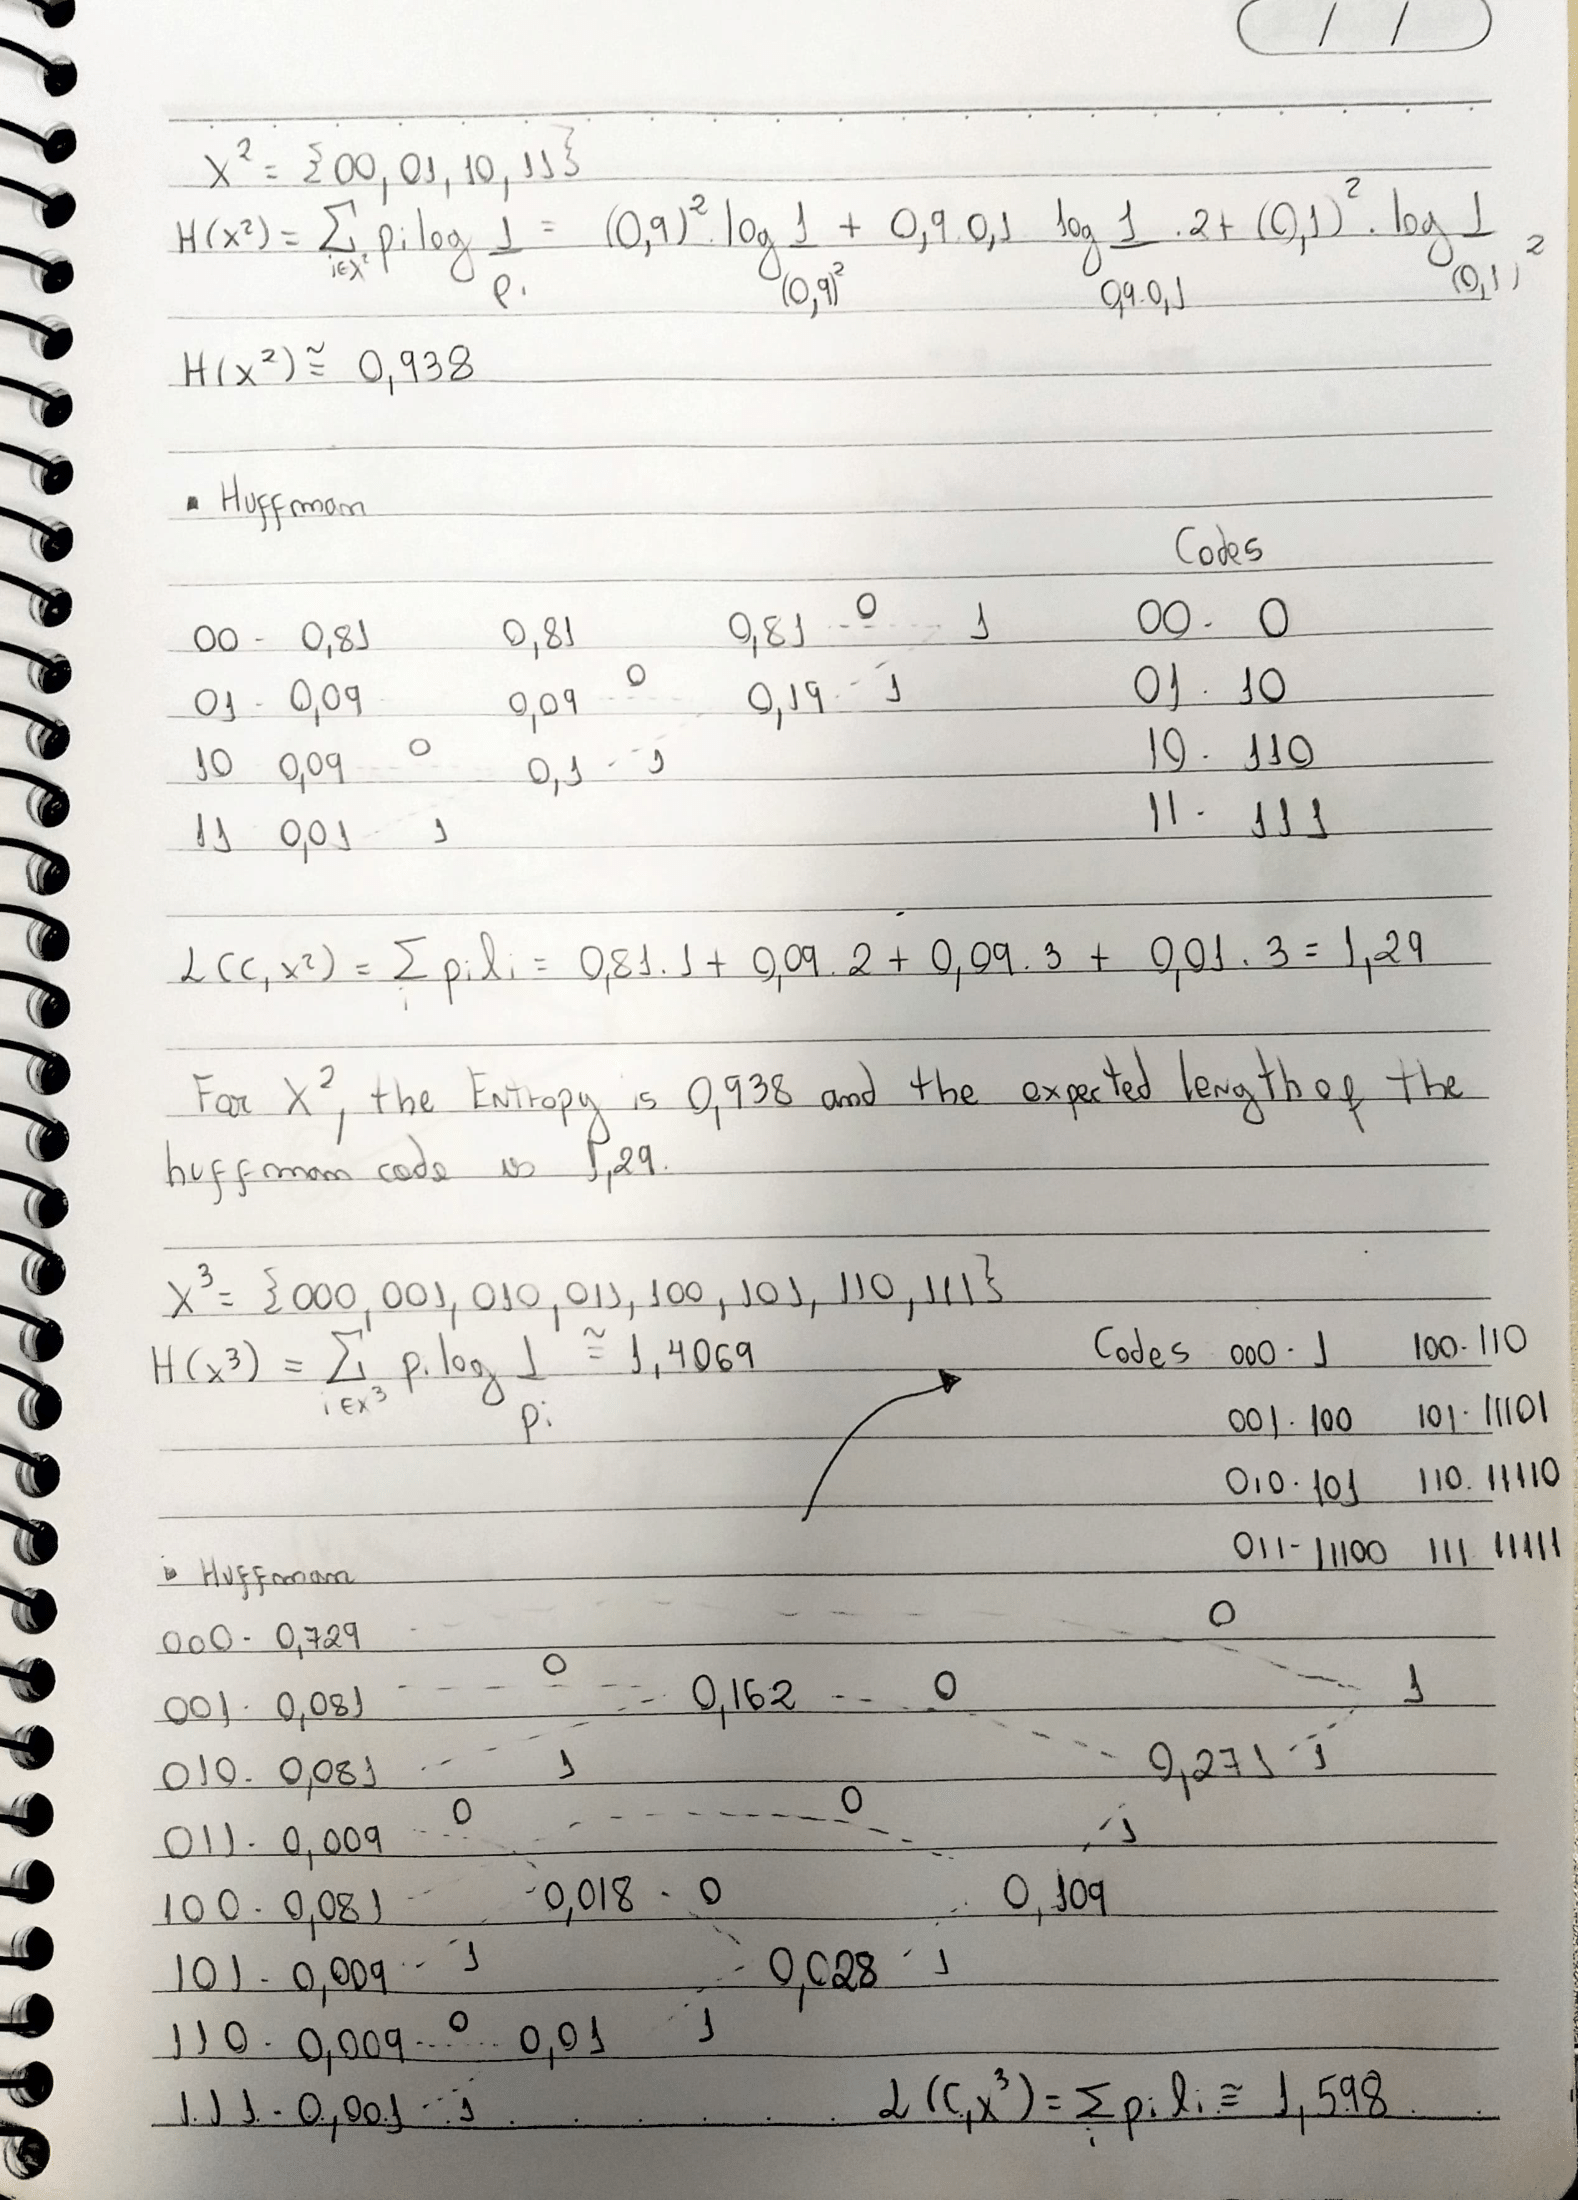 / /
X² = {00, 01, 10, 11}
H(x²) = Σ i∈X² pi log 1/pi = (0,9)². log 1/(0,9)² + 0,9.0,1 log 1/0,9.0,1 . 2 + (0,1)² . log 1/(0,1)²
H(x²) ≅ 0,938
▪ Huffman
Codes
00 - 0,81 0,81 0,81 0 1 00 - 0
01 - 0,09 0,09 0 0,19 1 01 - 10
10 0,09 0 0,1 1 10 - 110
11 0,01 1 11 - 111
L(C, x²) = Σ i pi li = 0,81.1 + 0,09.2 + 0,09.3 + 0,01.3 = 1,29
For X², the Entropy is 0,938 and the expected length of the
huffman code is 1,29.
X³ = {000, 001, 010, 011, 100, 101, 110, 111}
H(x³) = Σ i∈X³ pi log 1/pi ≅ 1,4069
Codes 000 - 1 100 - 110
001 - 100 101 - 11101
010 - 101 110 - 11110
011 - 11100 111 11111
▪ Huffman
000 - 0,729 0
001 - 0,081 0 0,162 0 1
010 - 0,081 1 0,271 1
011 - 0,009 0 0 1
100 - 0,081 0,018 0 0,109
101 - 0,009 1 0,028 1
110 - 0,009 0 0,01 1
111 - 0,001 1 L(C, x³) = Σ i pi li ≅ 1,598